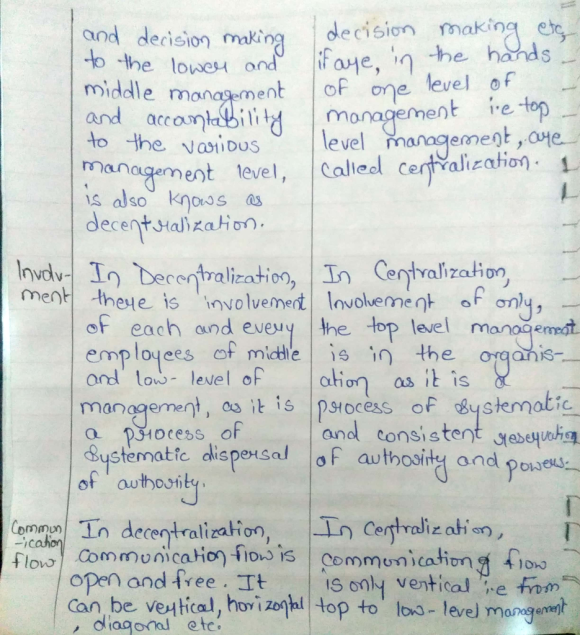 and decision making
to the lower and
middle management
and accountability
to the various
management level,
is also knows as
decentralization.
decision making etc,
if are, in the hands
of one level of
management i.e top
level management, are
called centralization.
Involv-
ment
In Decentralization,
there is involvement
of each and every
employees of middle
and low-level of
management, as it is
a process of
systematic dispersal
of authority.
In Centralization,
Involvement of only,
the top level management
is in the organis-
ation as it is a
process of systematic
and consistent reservation
of authority and powers.
Commun
-ication
flow
In decentralization,
communication flow is
open and free. It
can be vertical, horizontal
, diagonal etc.
In Centralization,
communication flow
is only vertical i.e from
top to low-level management